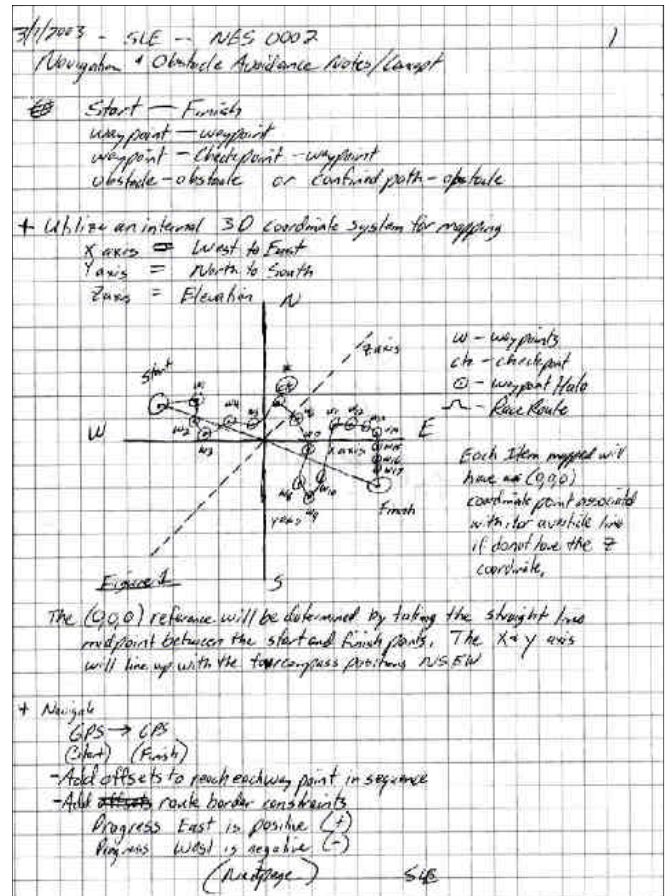 3/1/2003 - SLE -- NES 0002
1
Navigation & Obstacle Avoidance Notes/Concept
Start — Finish
waypoint — waypoint
waypoint - Checkpoint - waypoint
obstacle-obstacle or confined path - obstacle
+ Utilize an internal 3D coordinate system for mapping
X axis = West to East
Y axis = North to South
Z axis = Elevation
N
Z axis
w - waypoints
ch - checkpoint
- waypoint Halo
- Race Route
Start
W
E
X axis
Y axis
Finish
S
Each Item mapped will
have (0,0,0)
coordinate point associated
with it or a vertical line
if do not have the Z
coordinate.
Figure 1
The (0,0,0) reference will be determined by taking the straight line
midpoint between the start and finish points. The X & Y axis
will line up with the four compass positions NSEW
+ Navigate
GPS → GPS
(Start) (Finish)
-Add offsets to reach each way point in sequence
-Add route border constraints
Progress East is positive (+)
Progress West is negative (-)
(Next page)
SLE